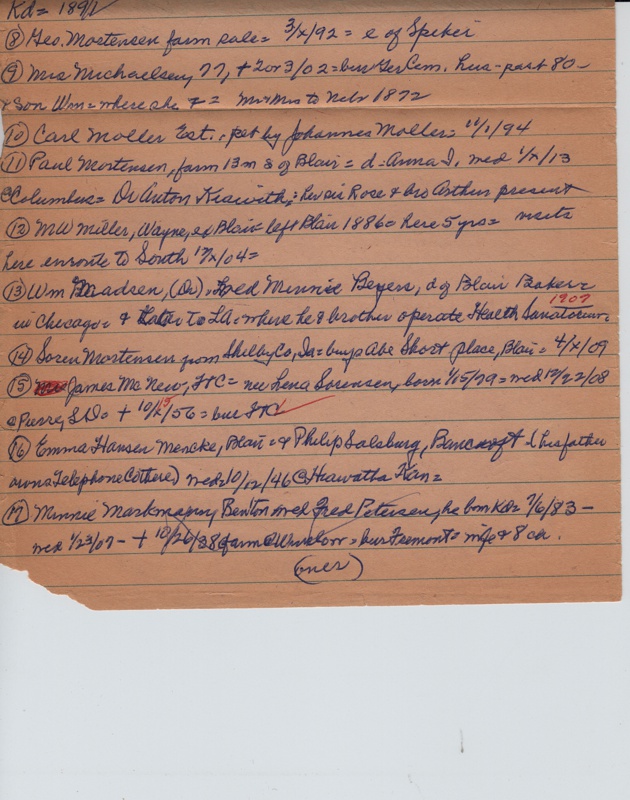 Kd = 1891
(8) Geo. Mortensen farm sale = 3/x/92 = e of Spiker
(9) Mrs Michaelsen, 77, + 2 or 3/02 = bur Ger Cem. hus = past 80 -
+ Son Wm = where she = Mr + Mrs to Nebr 1872
(10) Carl Moller Est., pet by Johannes Moller = 11/1/94
(11) Paul Mortensen, farm 13 m s of Blair = d = Anna I, med 1/x/13
@ Columbus = Dr Anton = her sir Rose + bro Arthur present
(12) MW Miller, Wayne, ex Blair = left Blair 1886 = here 5 yrs = visits
here enroute to South 12/x/04 =
(13) Wm Madsen, (Dr), Minnie Beyers, d of Blair Baker =
in Chicago = + to LA = where he & brother operate Health Sanatorium =
1907
(14) Soren Mortensen from Shelby Co, Ia = buys Abe Short place, Blair = 4/x/09
(15) James Mc New, FTC = nee Lena Sorensen, born 1/15/79 = med 12/22/08
@ Pierre, S.D. = + 10/15/56 = bur FTC
(16) Emma Hansen Mencke, Blair = & Philip Salsburg, Bancroft (his father
owns Telephone Co there) med = 10/12/46 @ Hiawatha Kan =
(17) Minnie Markmayer, Benton med Fred Petersen, he born Kd = 7/6/83 -
med 1/23/07 - + 10/26/38 @ farm @ Winslow = bur Fremont = wife & 8 ch.
(over)